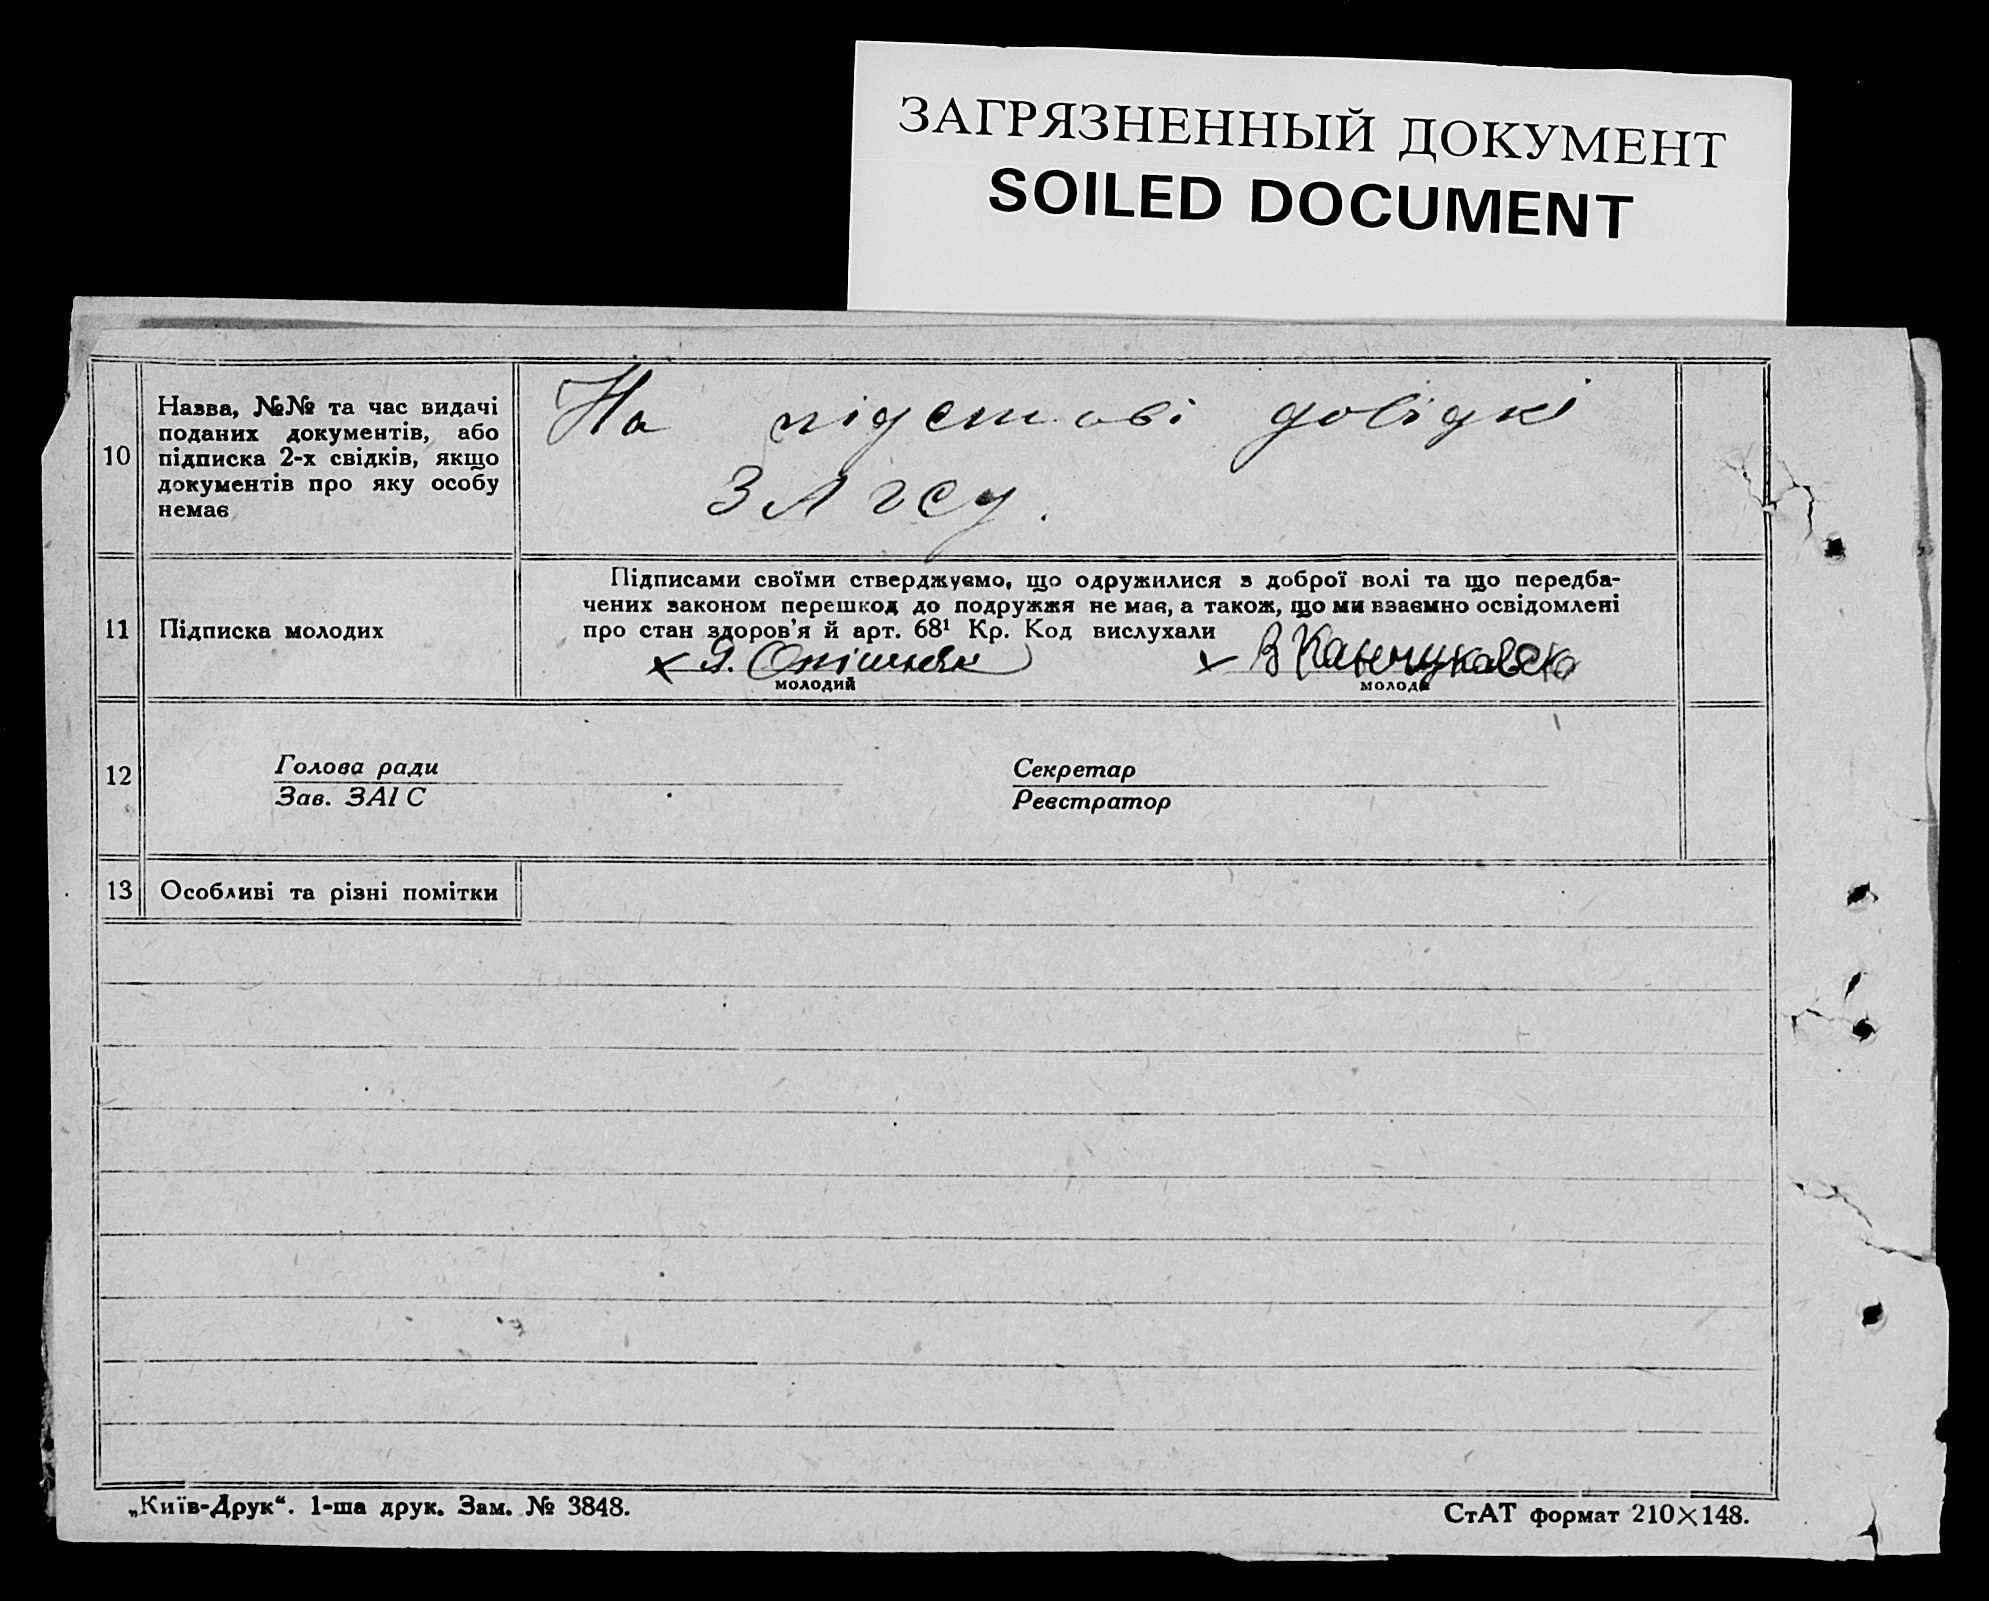 ЗАГРЯЗНЕННЫЙ ДОКУМЕНТ
SOILED DOCUMENT
10
Назва, №№ та час видачі
поданих документів, або
підписка 2-х свідків, якщо
документів про яку особу
немає
На підставі довідкі
ЗАГСу.
11
Підписка молодих
Підписами своїми стверджуємо, що одружилися з доброї волі та що передба-
чених законом перешкод до подружжя не має, а також, що ми взаємно освідомлені
про стан здоров'я й арт. 68¹ Кр. Код вислухали
Я. Онішчак
молодий
молода
12
Голова ради
Зав. ЗАГС
Секретар
Реєстратор
13
Особливі та різні помітки
„Київ-Друк“. 1-ша друк. Зам. № 3848.
СтАТ формат 210×148.